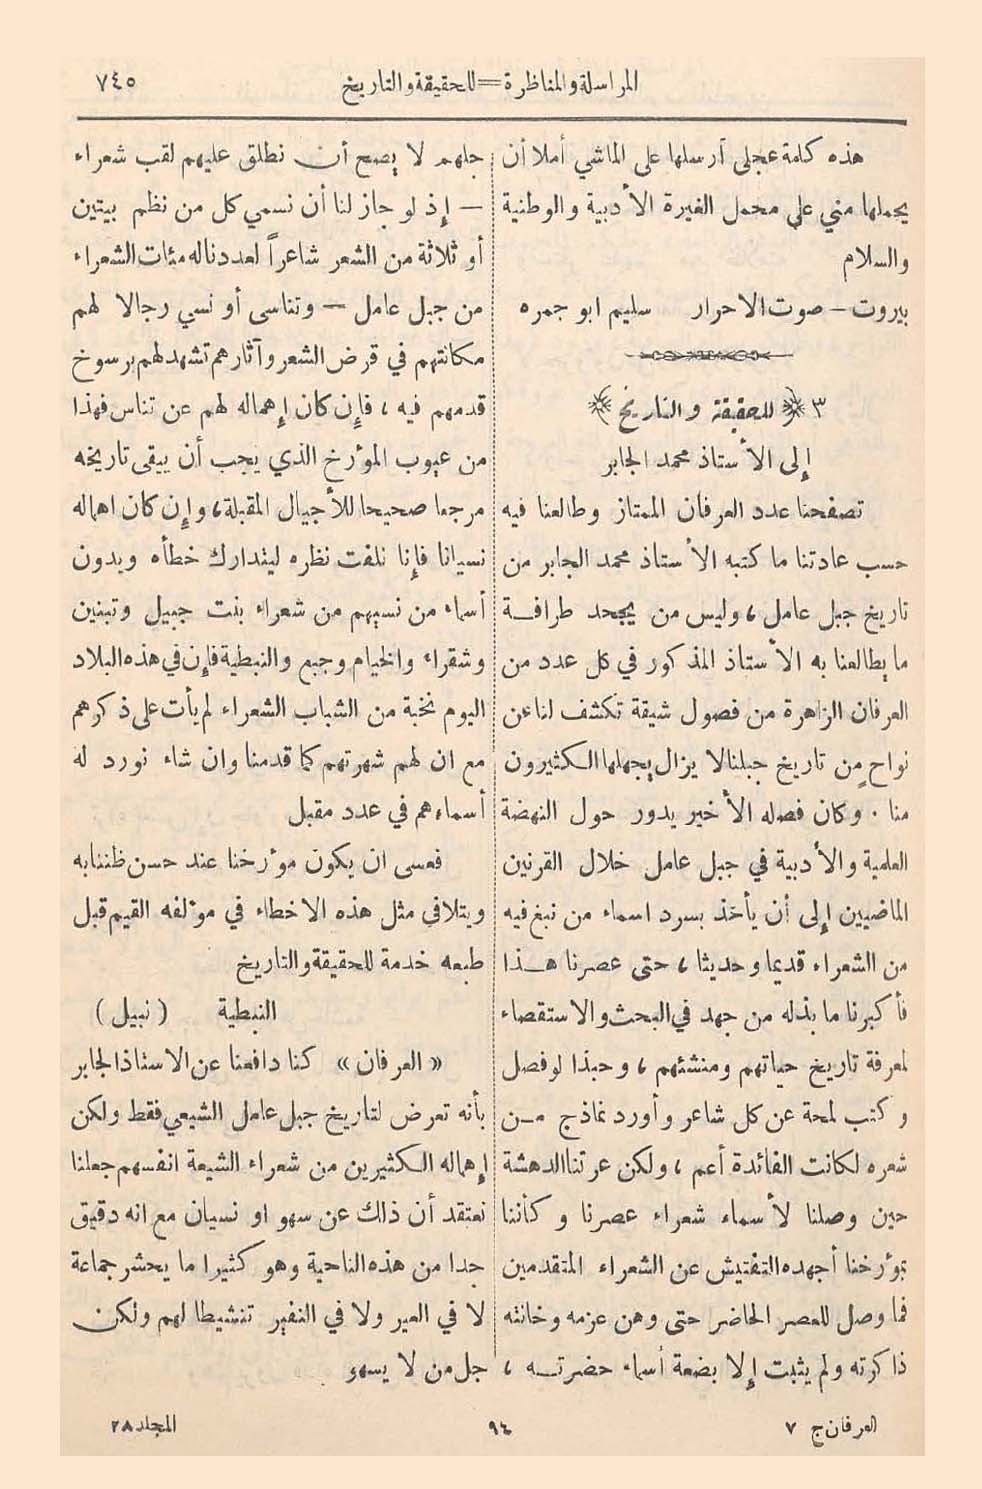 المراسلة والمناظرة = للحقيقة والتاريخ
٧٤٥
هذه كلمة عجلى أرسلها على الماشي أملا أن
يحملها مني على محمل الغيرة الأدبية والوطنية
والسلام
بيروت – صوت الاحرار سليم ابو جمره
٣ ﴿ للحقيقة والتاريخ ﴾
إلى الأستاذ محمد الجابر
تصفحنا عدد العرفان الممتاز وطالعنا فيه
حسب عادتنا ما كتبه الأستاذ محمد الجابر من
تاريخ جبل عامل، وليس من يجحد طرافة
ما يطالعنا به الأستاذ المذكور في كل عدد من
العرفان الزاهرة من فصول شيقة تكشف لنا عن
نواحٍ من تاريخ جبلنا لا يزال يجهلها الكثيرون
منا . وكان فصله الأخير يدور حول النهضة
العلمية والأدبية في جبل عامل خلال القرنين
الماضيين إلى أن يأخذ بسرد اسماء من نبغ فيه
من الشعراء قديما وحديثا، حتى عصرنا هـذا
فأكبرنا ما بذله من جهد في البحث والاستقصاء
لمعرفة تاريخ حياتهم ومنشئهم، وحبذا لو فصل
وكتب لمحة عن كل شاعر وأورد نماذج مـن
شعره لكانت الفائدة أعم، ولكن عرتنا الدهشة
حين وصلنا لأسماء شعراء عصرنا وكأننا
بمؤرخنا أجهده التفتيش عن الشعراء المتقدمين
فما وصل للعصر الحاضر حتى وهن عزمه وخانته
ذاكرته ولم يثبت إلا بضعة أسماء حضرتـه،
جلهم لا يصح أن نطلق عليهم لقب شعراء
– إذ لو جاز لنا أن نسمي كل من نظم بيتين
أو ثلاثة من الشعر شاعراً لعددنا له مئات الشعراء
من جبل عامل – وتناسى أو نسي رجالا لهم
مكانتهم في قرض الشعر وآثارهم تشهد لهم برسوخ
قدمهم فيه، فإن كان إهماله لهم عن تناس فهذا
من عيوب المؤرخ الذي يجب أن يبقى تاريخه
مرجعا صحيحا للأجيال المقبلة، وإن كان اهماله
نسيانا فإنا نلفت نظره ليتدارك خطأه ويدون
أسماء من نسيهم من شعراء بنت جبيل وتبنين
وشقراء والخيام وجبع والنبطية فإن في هذه البلاد
اليوم نخبة من الشباب الشعراء لم يأت على ذكرهم
مع ان لهم شهرتهم كما قدمنا وان شاء نورد له
أسماءهم في عدد مقبل
فعسى ان يكون مؤرخنا عند حسن ظننا به
ويتلافى مثل هذه الاخطاء في مؤلفه القيم قبل
طبعه خدمة للحقيقة والتاريخ
النبطية (نبيل)
« العرفان » كنا دافعنا عن الاستاذ الجابر
بأنه تعرض لتاريخ جبل عامل الشيعي فقط ولكن
إهماله الكثيرين من شعراء الشيعة انفسهم جعلنا
نعتقد أن ذلك عن سهو او نسيان مع انه دقيق
جدا من هذه الناحية وهو كثيرا ما يحشر جماعة
لا في العير ولا في النفير تنشيطا لهم ولكن
جل من لا يسهو
العرفان ج ٧
٩٤
المجلد ٢٨